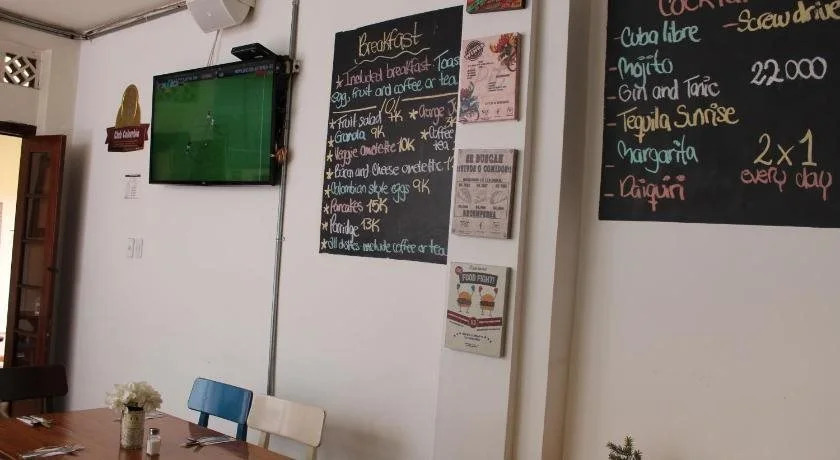 Club Colombia
Breakfast
* Included breakfast Toast
egg, fruit and coffee or tea
10K
* Fruit salad 7K
* Orange
* Granola 9K
* Coffee
tea
* Veggie omelette 10K
* Bacon and cheese omelette
* Colombian style eggs 9K
* Pancakes 15K
* Porridge 13K
* all dishes include coffee or tea
SE BUSCAN
¡VIVOS O COMIDOS!
RECOMPENSA
FOOD FIGHT!
Cocktai
- Cuba libre
- Screwdrive
- Mojito
22000
- Gin and Tonic
- Tequila Sunrise
- Margarita
2x1
every day
- Daiquiri